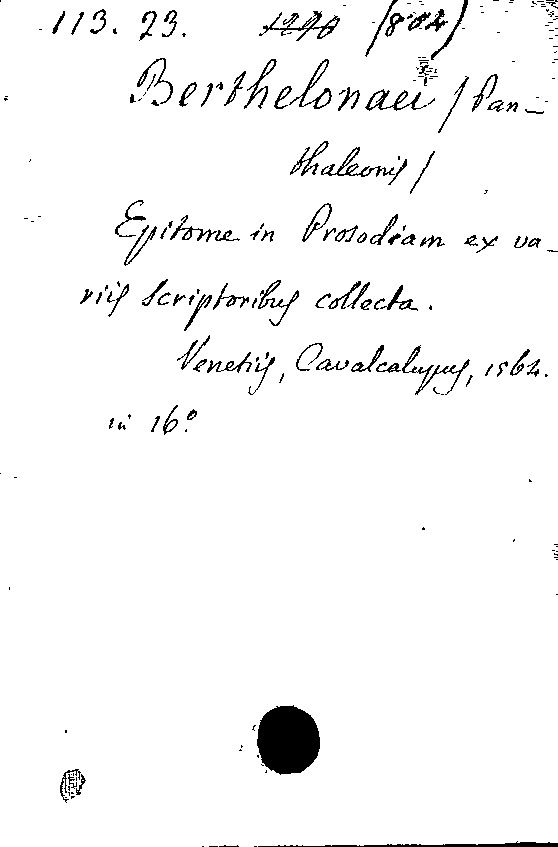 113. 23. 1290 (802)
Berthelonaei / Pan-
thaleonis /
Epitome in Prosodiam ex va-
riis scriptoribus collecta.
Venetiis, Cavalcalupus, 1562.
in 16º